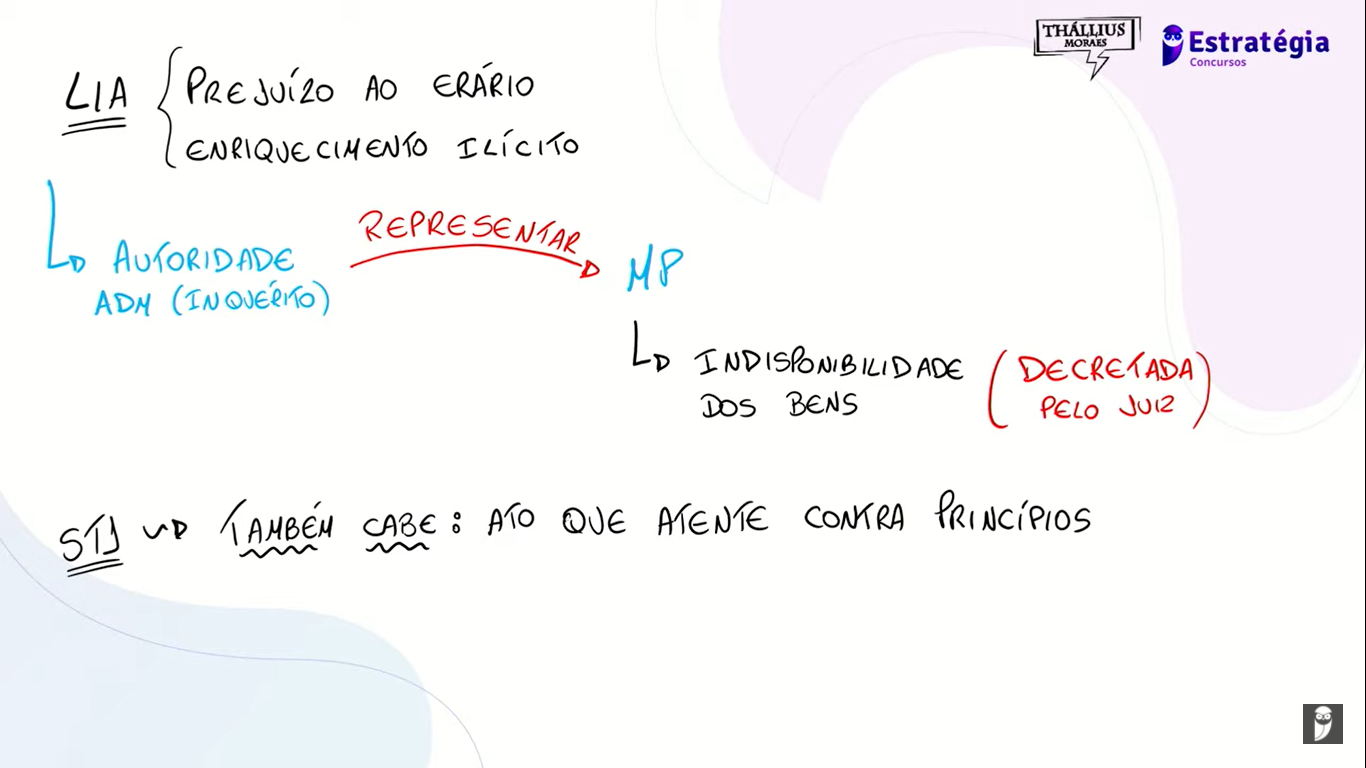 THÁLLIUS
MORAES
Estratégia
Concursos
LIA { PREJUÍZO AO ERÁRIO
ENRIQUECIMENTO ILÍCITO
AUTORIDADE
ADM (INQUÉRITO)
REPRESENTAR
MP
INDISPONIBILIDADE
DOS BENS
(DECRETADA
PELO JUIZ)
STJ → TAMBÉM CABE: ATO QUE ATENTE CONTRA PRINCÍPIOS